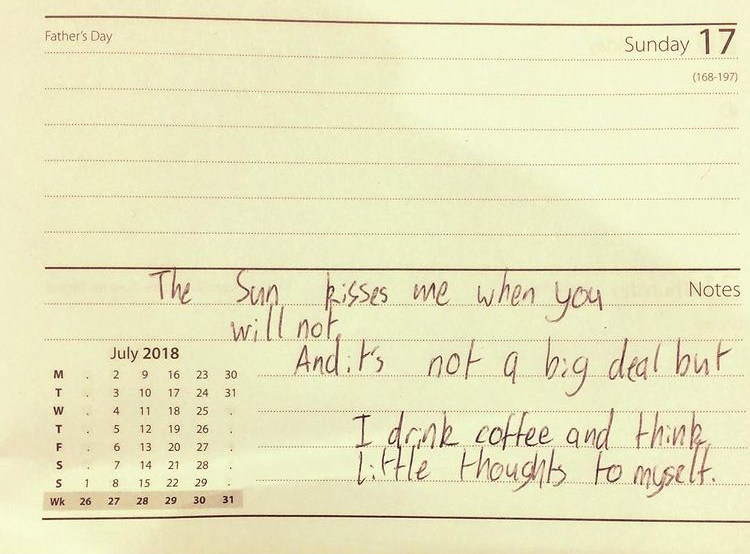 Father's Day
Sunday 17
(168-197)
The Sun kisses me when you
Notes
will not.
And it's not a big deal but
I drink coffee and think
little thoughts to myself.
July 2018
M . 2 9 16 23 30
T . 3 10 17 24 31
W . 4 11 18 25 .
T . 5 12 19 26 .
F . 6 13 20 27 .
S . 7 14 21 28 .
S 1 8 15 22 29 .
Wk 26 27 28 29 30 31